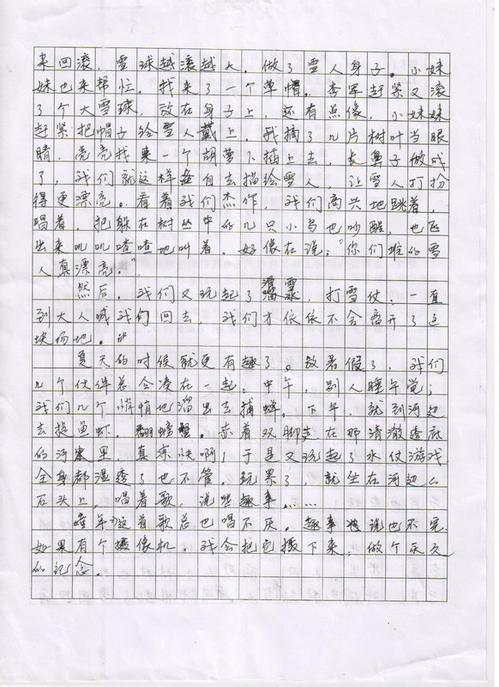 来回滚，雪球越滚越大。做了雪人身子。小妹
妹也来帮忙。找来了一个草帽。李军赶紧又滚
了个大雪球，放在身子上，还有点像，小妹妹
赶紧把帽子给雪人戴上。我摘了几片树叶当眼
睛，亮亮找来一个胡萝卜插上去，长鼻子做成
了，我们就这样各自去描绘雪人，让雪人打扮
得更漂亮。看着我们杰作，我们高兴地跳着，
唱着，把躲在树丛中的几只小鸟也吵醒，也飞
出来叽叽喳喳地叫着。好像在说：“你们堆的雪
人真漂亮。”
然后，我们又玩起了滑雪，打雪仗，一直
到大人喊我们回去，我们才依依不舍离开了这
块雨地。
夏天的时候就更有趣了。放暑假了，我们
几个伙伴总会凑在一起，中午，别人睡午觉；
我们几个悄悄地溜出去捕蝉。下午，就到河边
去捉鱼虾，翻螃蟹。赤着双脚走在那清澈透底
的河里，真凉快啊；于是又玩起了水仗游戏
全身都湿透了也不管。玩累了，就坐在河边的
石头上，唱着歌，说些趣事……
童年这首歌总也唱不厌。趣事也说也不完
如果有个摄像机，我会把它摄下来，做个永久
的记念。